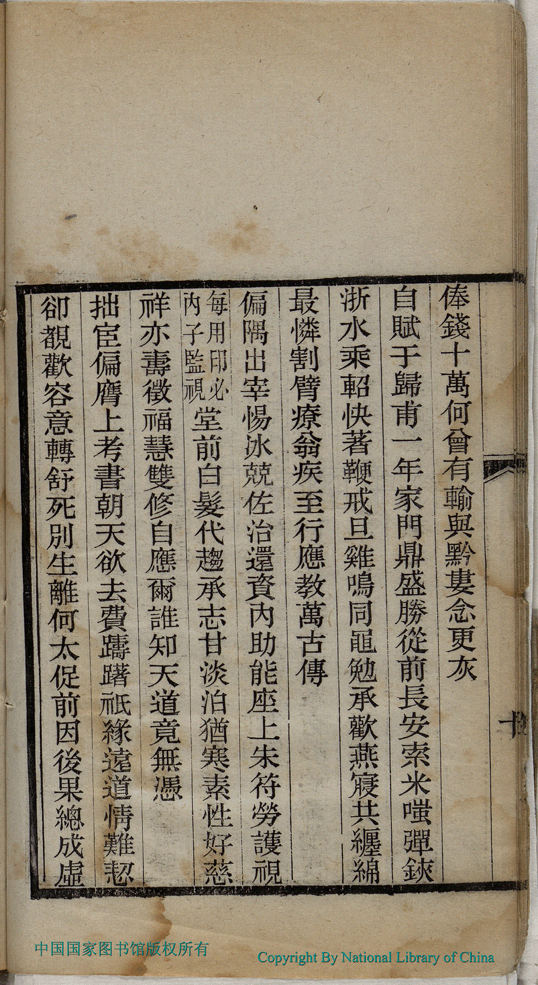 俸錢十萬何曾有輸與黔婁念更灰
自賦于歸甫一年家門鼎盛勝從前長安索米嗤彈鋏
浙水乘軺快著鞭戒旦雞鳴同黽勉承歡燕寢共纏綿
最憐割臂療翁疾至行應教萬古傳
偏隅出宰惕冰兢佐治還資內助能座上朱符勞護視
每用印必
內子監視
堂前白髮代趨承志甘淡泊猶寒素性好慈
祥亦壽徵福慧雙修自應爾誰知天道竟無憑
拙宦偏膺上考書朝天欲去費躊躇祇緣遠道情難恝
卻覩歡容意轉舒死別生離何太促前因後果總成虛
十
中国国家图书馆版权所有
Copyright By National Library of China